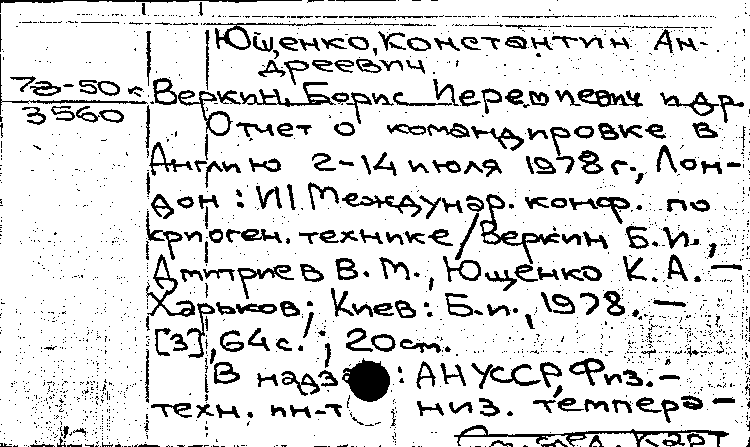 Ющенко, Константин Ан-
дреевич
7а-50к
3560
Веркин, Борис Иеремиевич и др.
Отчет о командировке в
Англию 2-14 июля 1978 г., Лон-
дон: VII Междунар. конф. по
криоген. технике / Веркин Б.И.,
Дмитриев В.М., Ющенко К.А. —
Харьков; Киев: Б.и., 1978. —
[3], 64 с.; 20 см.
В надзаг: АН УССР, Физ.-
техн. ин-т низ. темпера-
См. след. карт